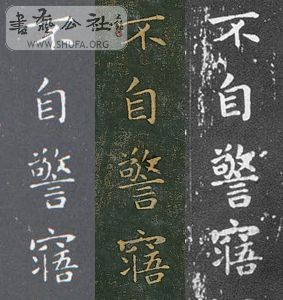 書藝公社
WWW.SHUFA.ORG
不自警寤
不自警寤
不自警寤